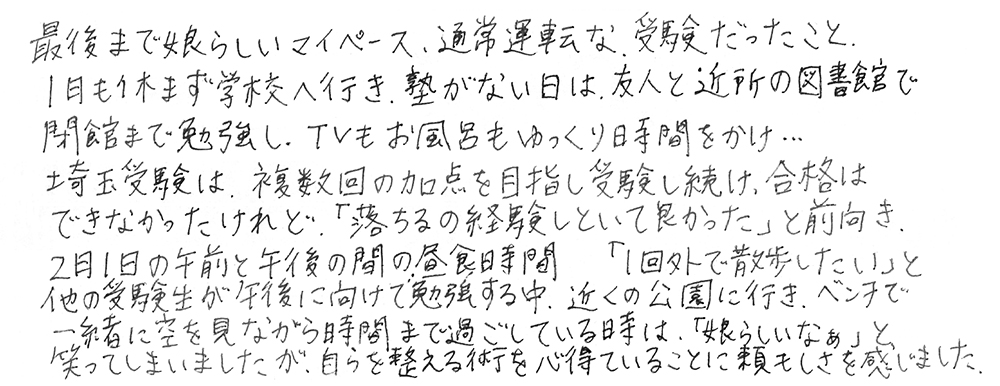 最後まで娘らしいマイペース、通常運転な、受験だったこと。
1日も休まず学校へ行き、塾がない日は、友人と近所の図書館で
閉館まで勉強し、TVもお風呂もゆっくり時間をかけ…
埼玉受験は、複数回の加点を目指し受験し続け、合格は
できなかったけれど、「落ちるの経験しといて良かった」と前向き、
2月1日の午前と午後の間の昼食時間 「1回外で散歩したい」と
他の受験生が午後に向けて勉強する中、近くの公園に行き、ベンチで
一緒に空を見ながら時間まで過ごしている時は、「娘らしいなぁ」と、
笑ってしまいましたが、自らを整える術を心得ていることに頼もしさを感じました。